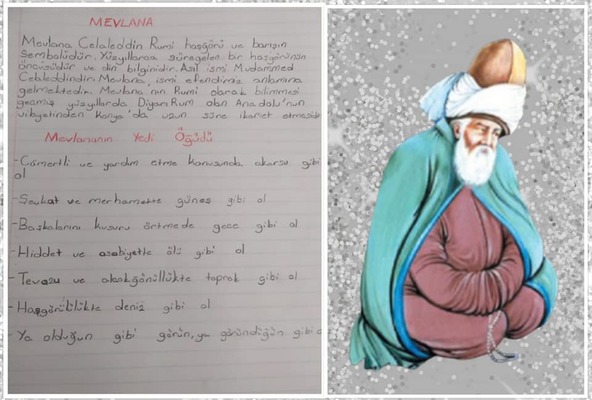 MEVLANA
Mevlana Celaleddin Rumi hoşgörü ve barışın
sembolüdür. Yüzyıllarca süregelen bir hoşgörünün
öncüsüdür ve din bilginidir. Asıl ismi Muhammed
Celaleddindir. Mevlana, ismi efendimiz anlamına
gelmektedir. Mevlana nın Rumi olarak bilinmesi
geçmiş yüzyıllarda Diyarı Rum olan Anadolu'nun
vilayetinden Konya'da uzun süre ikamet etmesidir
Mevlananın Yedi Öğüdü
-Cömertli ve yardım etme konusunda akarsu gibi
ol
-Şevkat ve merhamette güneş gibi ol
-Başkalarını kusuru örtmede gece gibi ol
-Hiddet ve asabiyette ölü gibi ol
-Tevazu ve alçakgönüllükte toprak gibi ol
-Hoşgörülükte deniz gibi ol
-Ya olduğun gibi görün, ya göründüğün gibi o